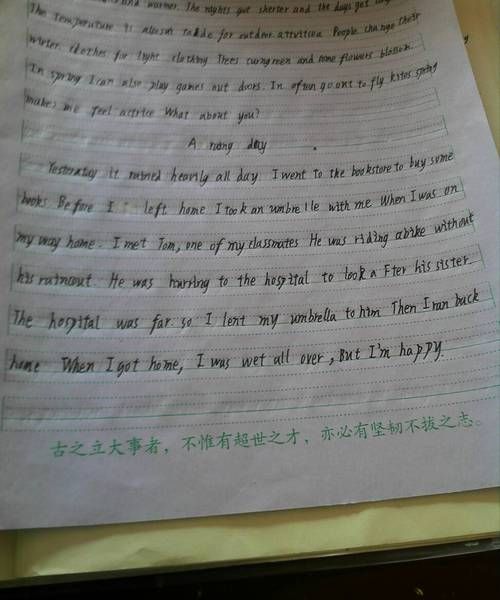 and warmer. The nights get shorter and the days get
The temperature is for outdoor People change their
winter clothes for light clothing Trees turn green and flowers blossom.
In spring I can also play games out doors. In often go out to fly kites spring
makes me feel active What about you?
A rainy day
Yesterday it rained heavily all day I went to the bookstore to buy some
books Before I left home I took an umbrella with me When I was on
my way home. I met Tom, one of my classmates He was riding a bike without
his raincout He was hurring to the hospital to look a Fter his sister
The hospital was far. so I lent my umbrella to him Then I ran back
home When I got home, I was wet all over, But I'm happy.
古之立大事者，不惟有超世之才，亦必有坚韧不拔之志。